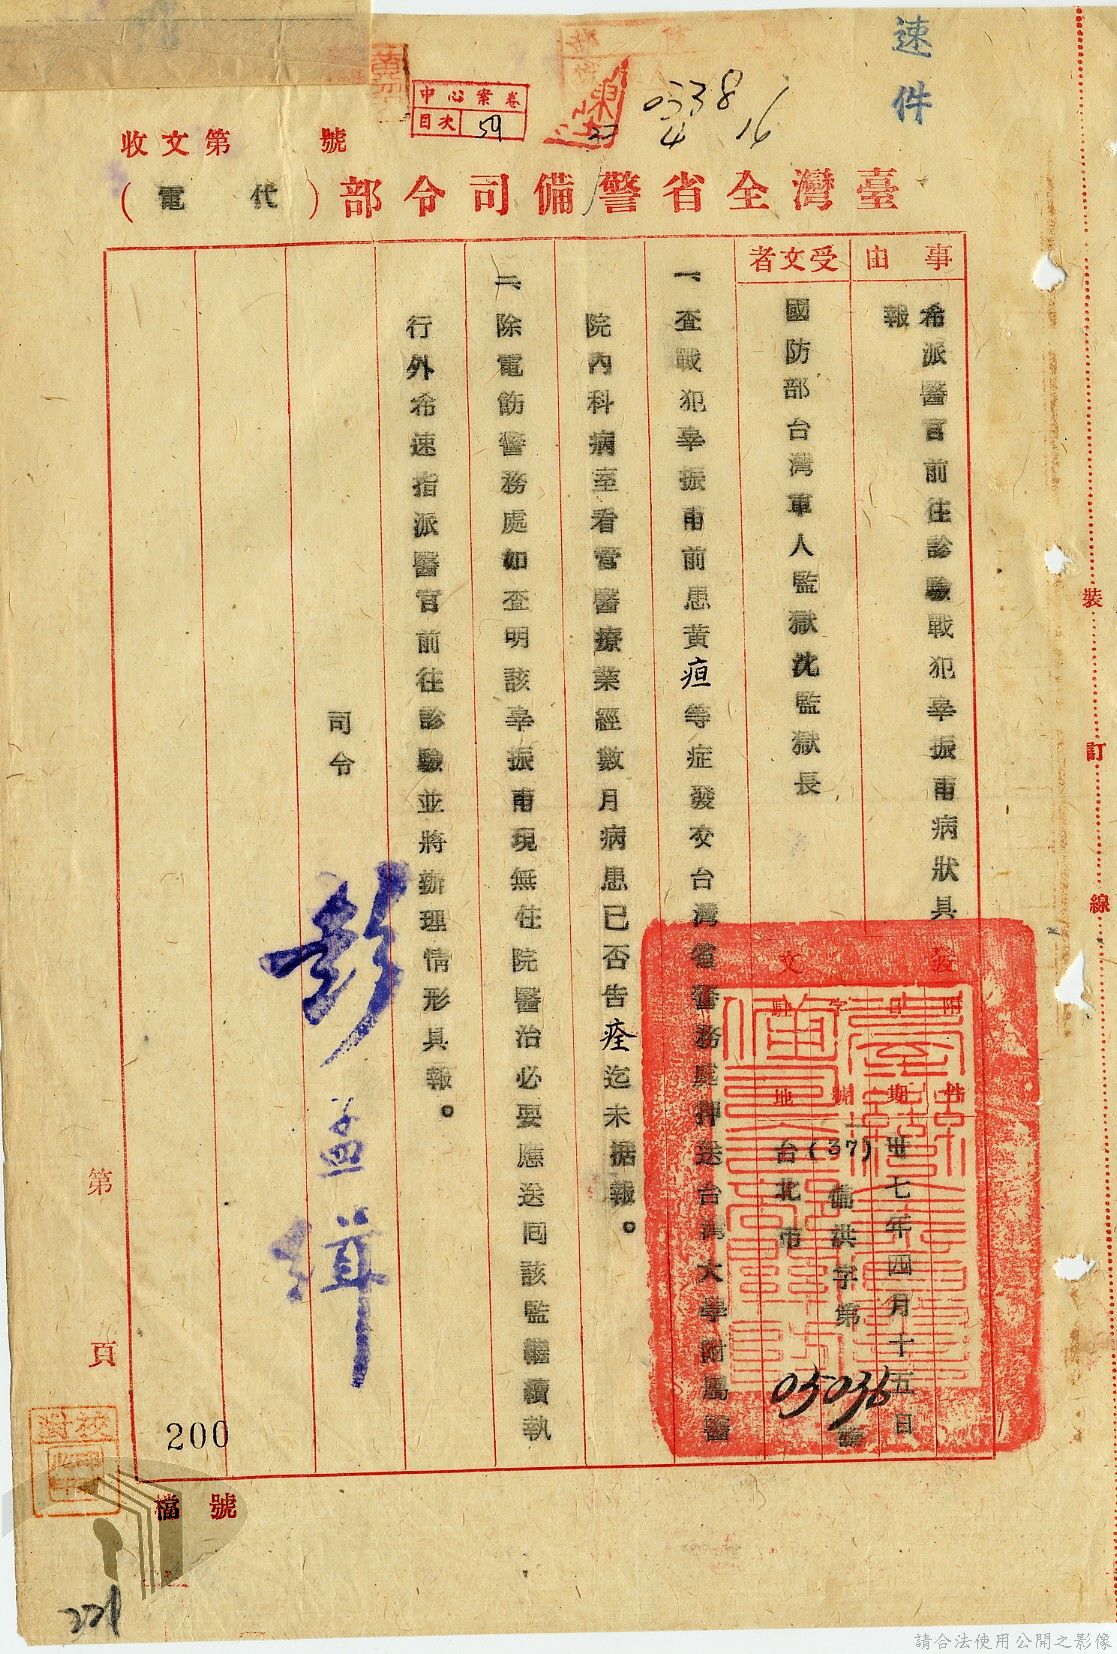 速件
0338
4 16
中心案卷
目次 59
收文第 號
臺灣全省警備司令部（代電）
事由
希派醫官前往診驗戰犯辜振甫病狀具
報
受文者
國防部台灣軍人監獄沈監獄長
發文
附件
日期
卅七年四月十五日
字號
(37)
備洪字第
05036
號
駐地
台北市
一、查戰犯辜振甫前患黃疸等症發交台灣省警務處押送台灣大學附屬醫
院內科病室看管醫療業經數月病患已否告痊迄未据報。
二、除電飭警務處如查明該辜振甫現無住院醫治必要應送回該監繼續執
行外希速指派醫官前往診驗並將辦理情形具報。
司令
彭孟緝
裝
訂
線
第
頁
200
校對
檔號
221
請合法使用公開之影像